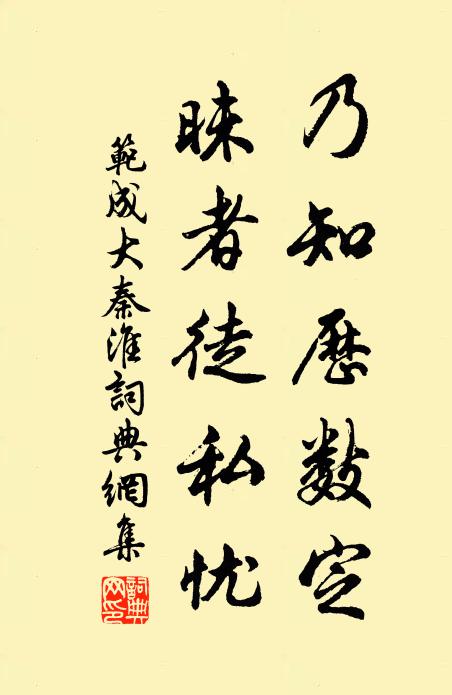 乃知历数定
昧者徒私忧
範成大秦淮詞典網集
詞典网印